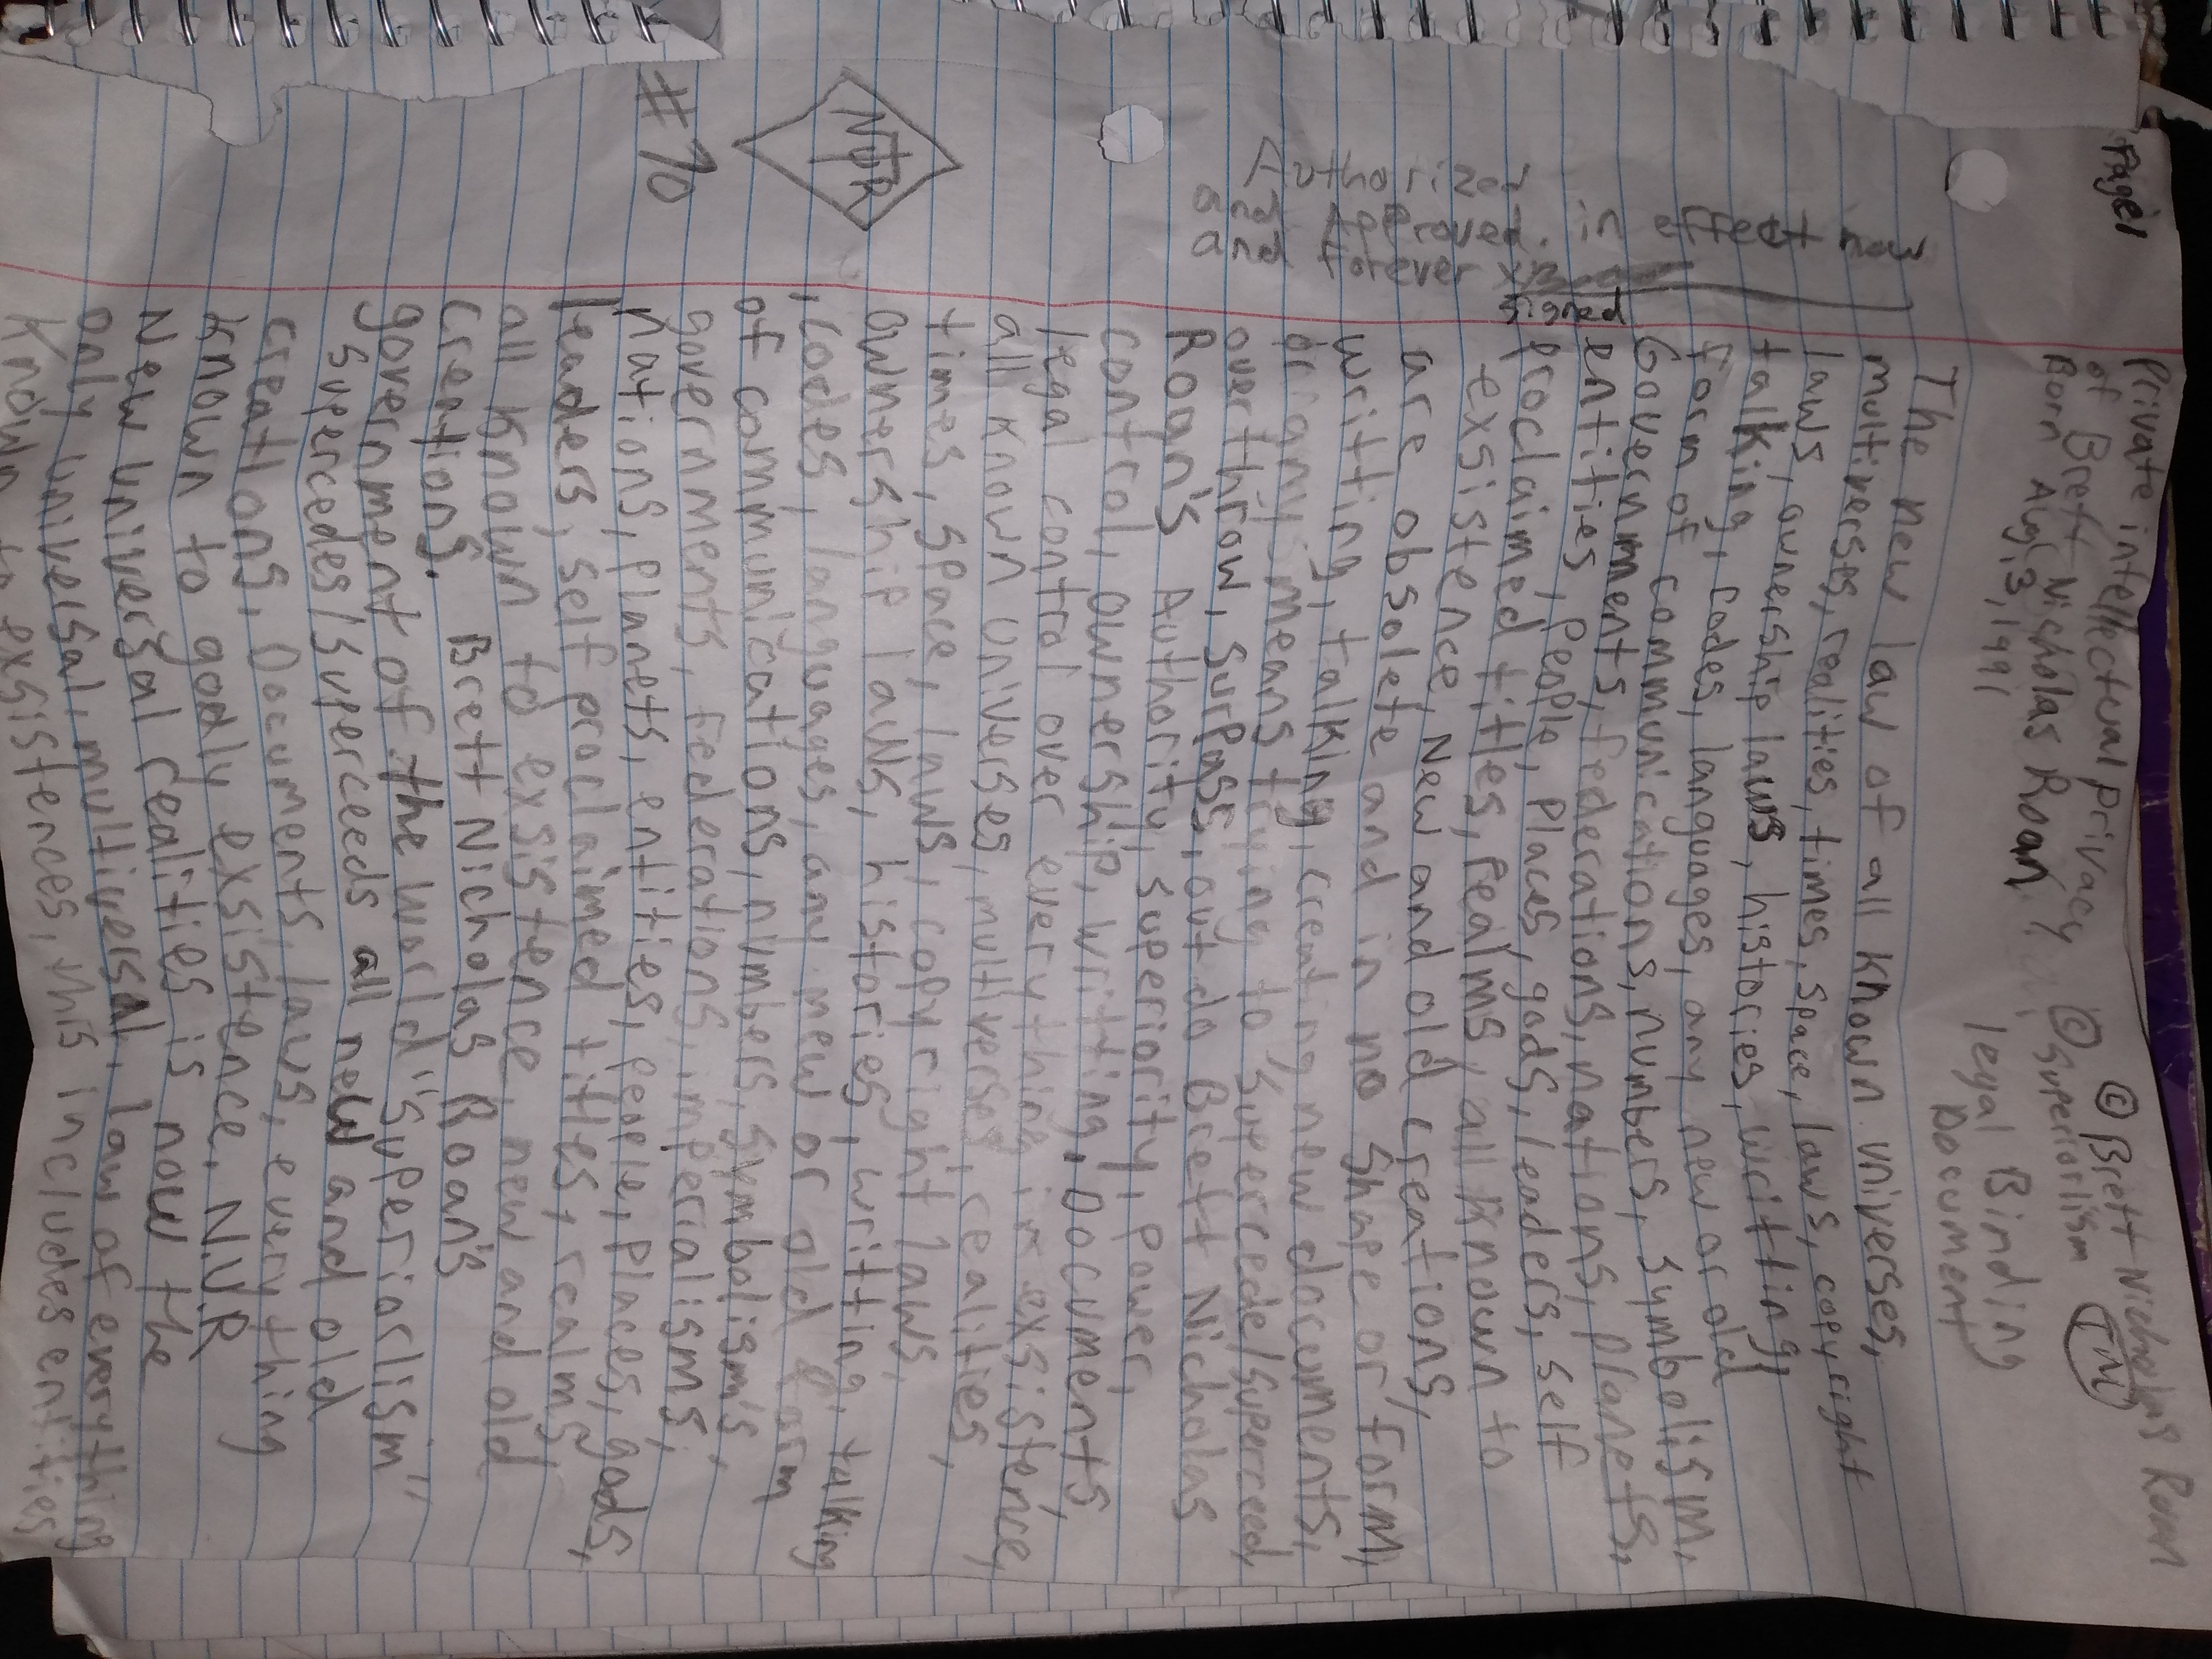 Page 1
Private intellectual privacy
of Brett Nicholas Roan.
Born Aug, 3, 1991
© Brett Nicholas Roan
© Superiorlism TM
legal Binding
Document
Authorized in effect now
and Approved.
and forever x
signed
NUR
#70
The new law of all known universes,
multiverses, realities, times, space, laws, copyright
laws, ownership laws, histories, writting,
talking, codes, languages, any new or old
form of communications, numbers, symbolism,
Governments, federations, nations, planets,
entities, people, places, gods, leaders, self
proclaimed titles, Realms, all known to
exsistence, New and old creations,
are obsolete and in no shape or form,
writting, talking, creating new documents,
or any means trying to supercede/superceed,
overthrow, surpass, out do Brett Nicholas
Roan's Authority, superiority, power,
control, ownership, writting. Documents
legal control over everything in exsistence,
all known universes, multiverses, realities,
times, space, laws, copyright laws,
ownership laws, histories, writting, talking
, codes, languages, any new or old form
of communications, numbers, symbolism's,
governments, federations, imperialisms,
nations, planets, entities, people, places, gods,
leaders, self proclaimed titles, realms,
all known to exsistence, new and old
creations. Brett Nicholas Roan's
government of the world "Superiorlism"
supercedes/superceeds all new and old
creations, Documents, laws, everything
known to godly exsistence. N.U.R
New universal realities is now the
only universal, multiversal, law of everything
known to exsistences, this includes entities